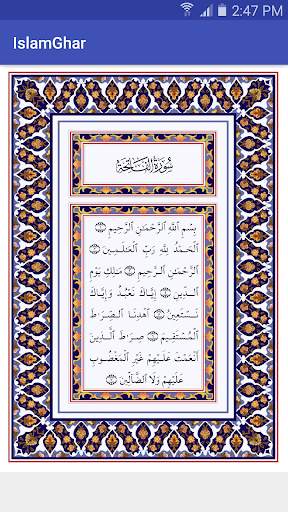 2:47 PM
IslamGhar
سُورَةُ الفَاتِحَةِ
بِسْمِ ٱللَّهِ ٱلرَّحْمَـٰنِ ٱلرَّحِيمِ ۝
ٱلْحَمْدُ لِلَّهِ رَبِّ ٱلْعَـٰلَمِينَ ۝
ٱلرَّحْمَـٰنِ ٱلرَّحِيمِ ۝ مَـٰلِكِ يَوْمِ
ٱلدِّينِ ۝ إِيَّاكَ نَعْبُدُ وَإِيَّاكَ
نَسْتَعِينُ ۝ ٱهْدِنَا ٱلصِّرَٰطَ
ٱلْمُسْتَقِيمَ ۝ صِرَٰطَ ٱلَّذِينَ
أَنْعَمْتَ عَلَيْهِمْ غَيْرِ ٱلْمَغْضُوبِ
عَلَيْهِمْ وَلَا ٱلضَّآلِّينَ ۝